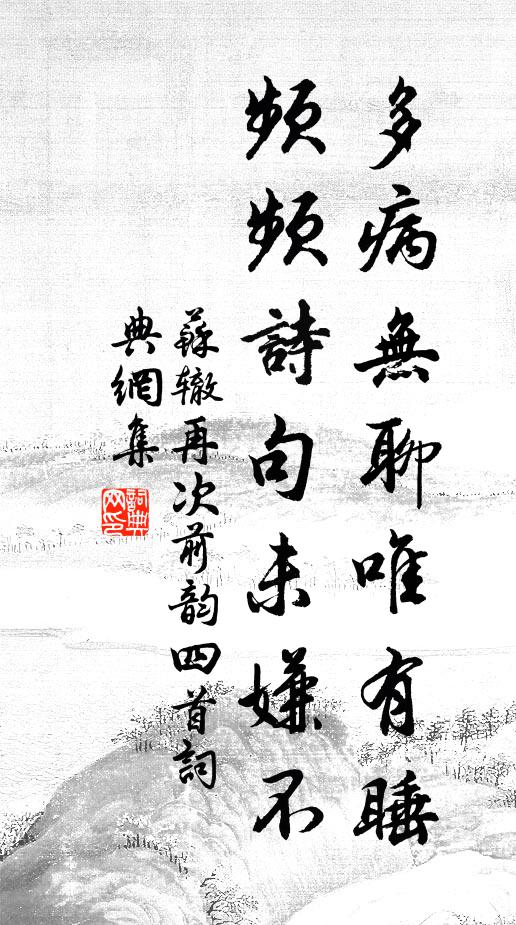 多病無聊唯有睡
頻頻詩句未嫌不
蘇辙再次前韵四首詞
典網集
詞典
网印